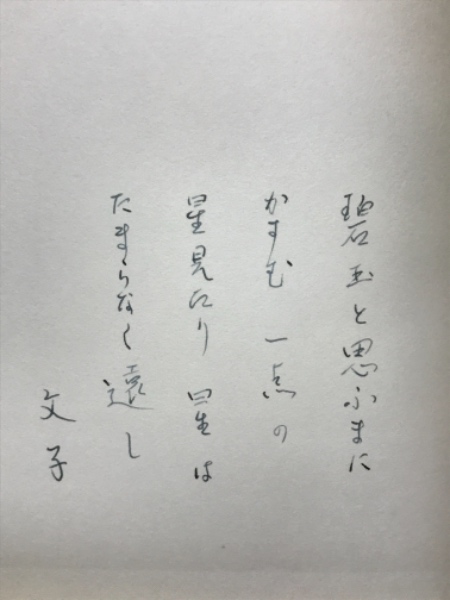 碧玉と思ふまに
かすむ 一点の
星見たり 星は
たまらなく遠し
文子